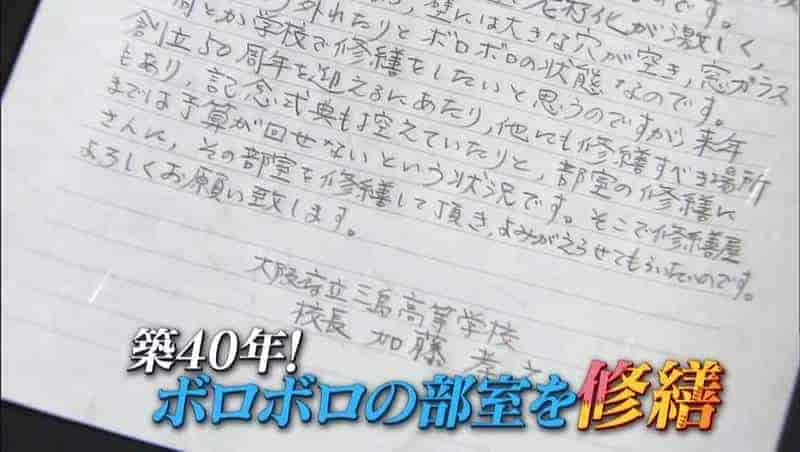 老朽化が激しく、
外れたりとボロボロの状態なのです。
壁には大きな穴が空き、窓ガラス
何とか学校で修繕をしたいと思うのですが、来年
創立50周年を迎えるにあたり、他にも修繕すべき場所
もあり、記念式典も控えていたりと、部室の修繕に
までは予算が回せないという状況です。そこで修繕屋
さんに、その部室を修繕して頂き、よみがえらせてもらいたいのです。
よろしくお願い致します。
大阪府立三島高等学校
校長 加藤 孝
築40年!
ボロボロの部室を修繕